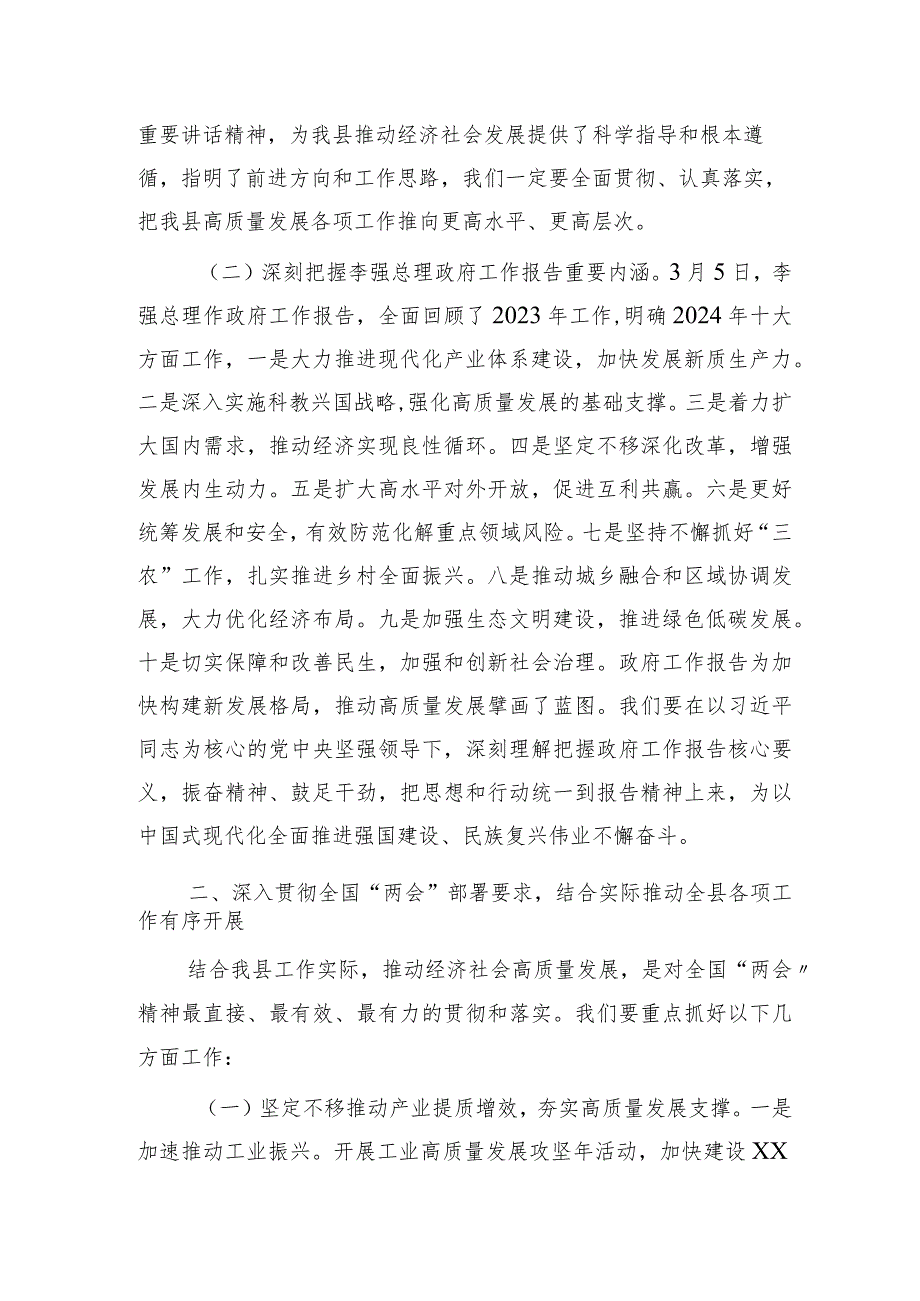 重要讲话精神，为我县推动经济社会发展提供了科学指导和根本遵
循，指明了前进方向和工作思路，我们一定要全面贯彻、认真落实，
把我县高质量发展各项工作推向更高水平、更高层次。
（二）深刻把握李强总理政府工作报告重要内涵。3月5日，李
强总理作政府工作报告，全面回顾了2023年工作,明确2024年十大
方面工作，一是大力推进现代化产业体系建设，加快发展新质生产力。
二是深入实施科教兴国战略,强化高质量发展的基础支撑。三是着力扩
大国内需求，推动经济实现良性循环。四是坚定不移深化改革，增强
发展内生动力。五是扩大高水平对外开放，促进互利共赢。六是更好
统筹发展和安全，有效防范化解重点领域风险。七是坚持不懈抓好“三
农”工作，扎实推进乡村全面振兴。八是推动城乡融合和区域协调发
展，大力优化经济布局。九是加强生态文明建设，推进绿色低碳发展。
十是切实保障和改善民生，加强和创新社会治理。政府工作报告为加
快构建新发展格局，推动高质量发展擘画了蓝图。我们要在以习近平
同志为核心的党中央坚强领导下，深刻理解把握政府工作报告核心要
义，振奋精神、鼓足干劲，把思想和行动统一到报告精神上来，为以
中国式现代化全面推进强国建设、民族复兴伟业不懈奋斗。
二、深入贯彻全国“两会”部署要求，结合实际推动全县各项工
作有序开展
结合我县工作实际，推动经济社会高质量发展，是对全国“两会〃
精神最直接、最有效、最有力的贯彻和落实。我们要重点抓好以下几
方面工作：
（一）坚定不移推动产业提质增效，夯实高质量发展支撑。一是
加速推动工业振兴。开展工业高质量发展攻坚年活动，加快建设XX